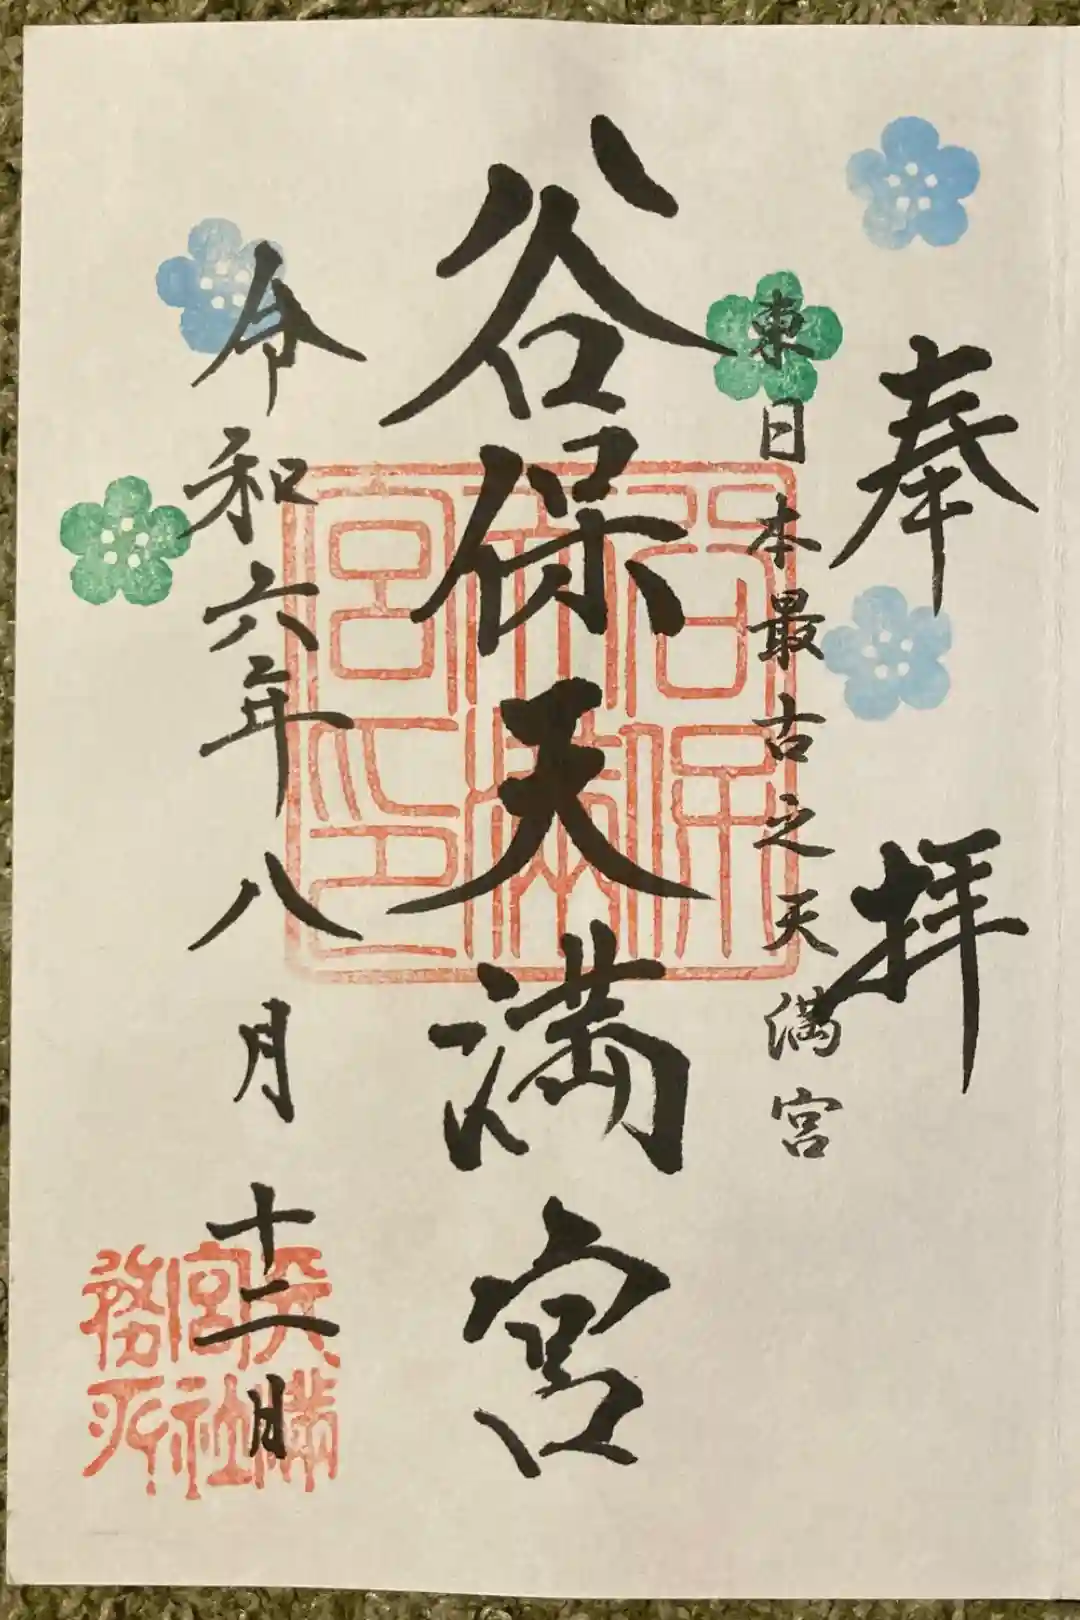 奉拝
東日本最古之天満宮
谷保天満宮
谷保天満宮印
令和六年八月十二日
天満宮社務所